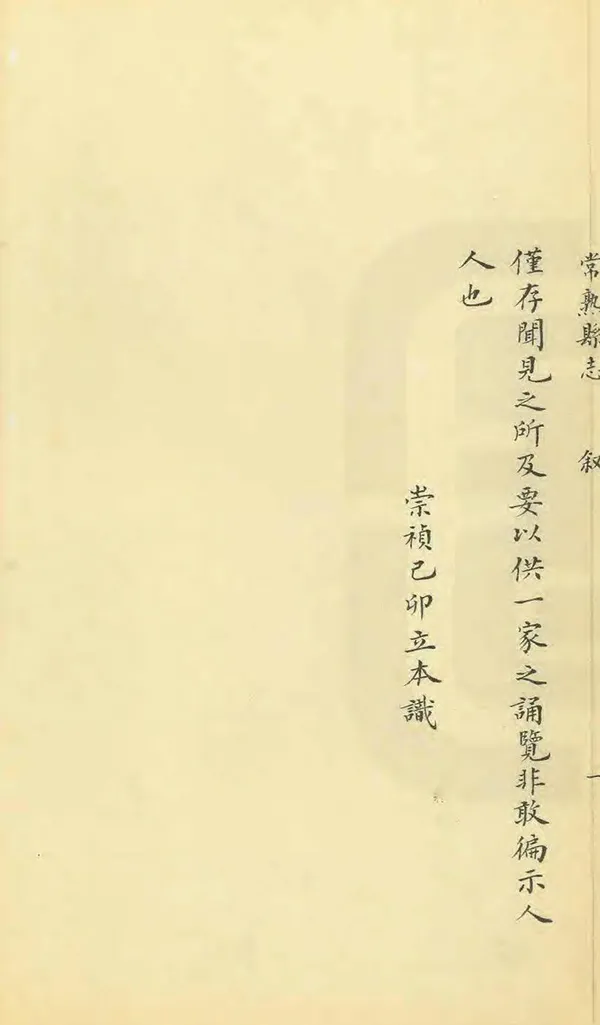 常熟縣志 叙 一
僅存聞見之所及要以供一家之誦覽非敢徧示人
人也
崇禎己卯立本識